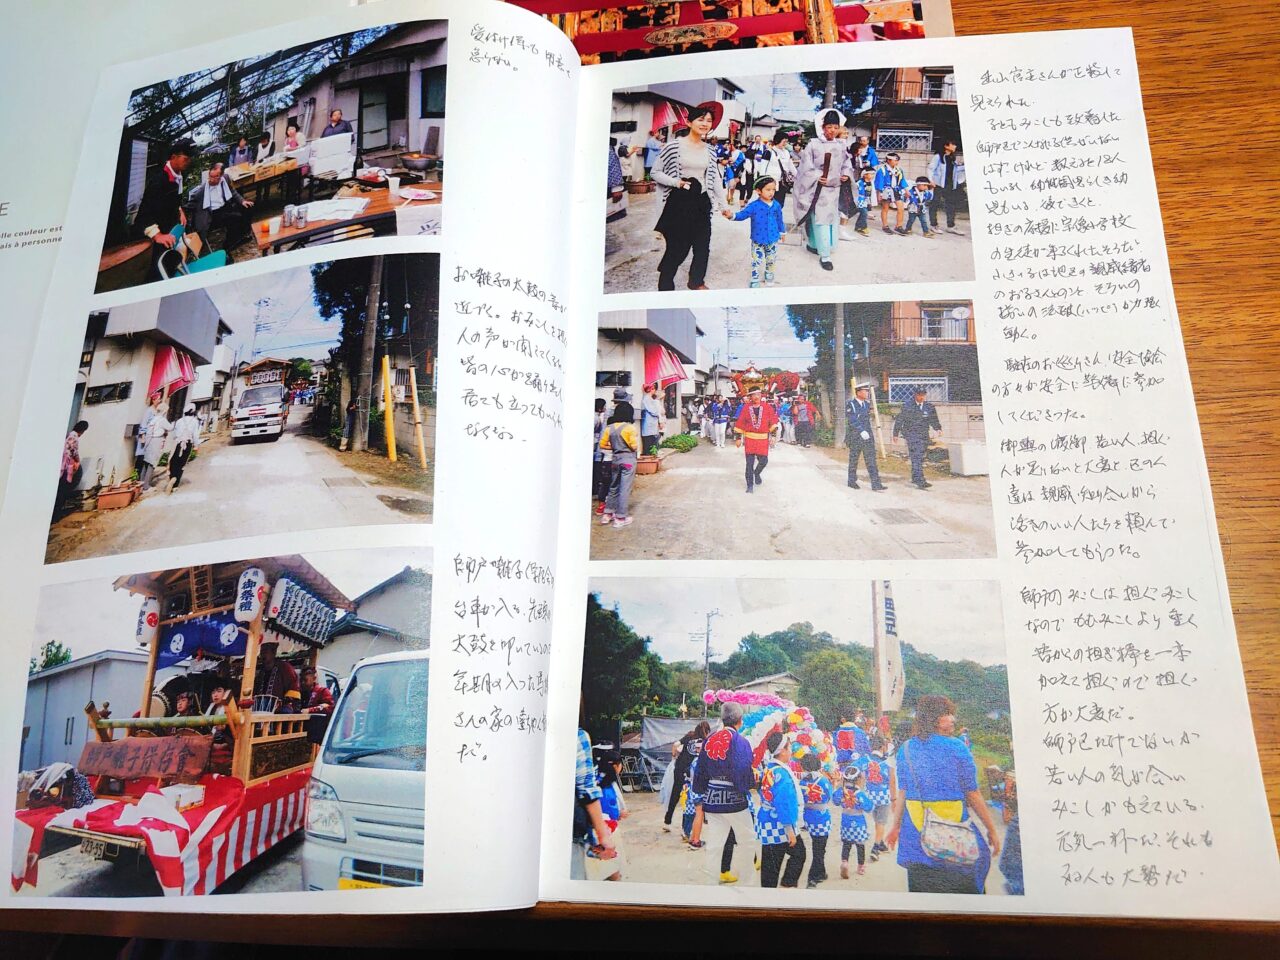 E
elle couleur est
ais à personne
受付け係も用意を
怠らない。
お囃子の太鼓の音が
近づく。おみこしを担ぐ
人の声が聞えてくる
皆の心が踊り出し
居ても立ってもいられ
なくなる。
師戸囃子保存会の
台車が入る。先頭で
太鼓を叩いているの
年期の入った
さんの家の
だ。
御祭禮
師戸囃子保存會
23-95
宮主さんが正装して
見えられた。
子どもみこしも到着した
師戸区には子供がいない
はず、けれど数えると12人
もいる 幼稚園児らしき幼
児もいる。後できくと、
担ぎの応援に宗像小学校
の生徒が来てくれたそうだ
小さい子は地区の親戚縁者
のお子さんとのこと そろいの
揃いの法被(はっぴ)が力強く
動く。
駐在のお巡りさん、安全協会
の方々が安全に警備に参加
してくださった。
御輿の渡御 若い人、担ぐ
人が足りないと大変と、区の人
達は親戚、知り合いから
活きのいい人たちを頼んで
参加してもらった。
師戸のみこしは担ぐみこし
なので もむみこしより重く
昔からの担ぎ棒を一本
加えて担ぐので担ぐ
方が大変だ。
師戸区だけでないが
若い人の気が合い
みこしがもえている。
元気一杯だ、それも
見る人も大勢だ。
祭